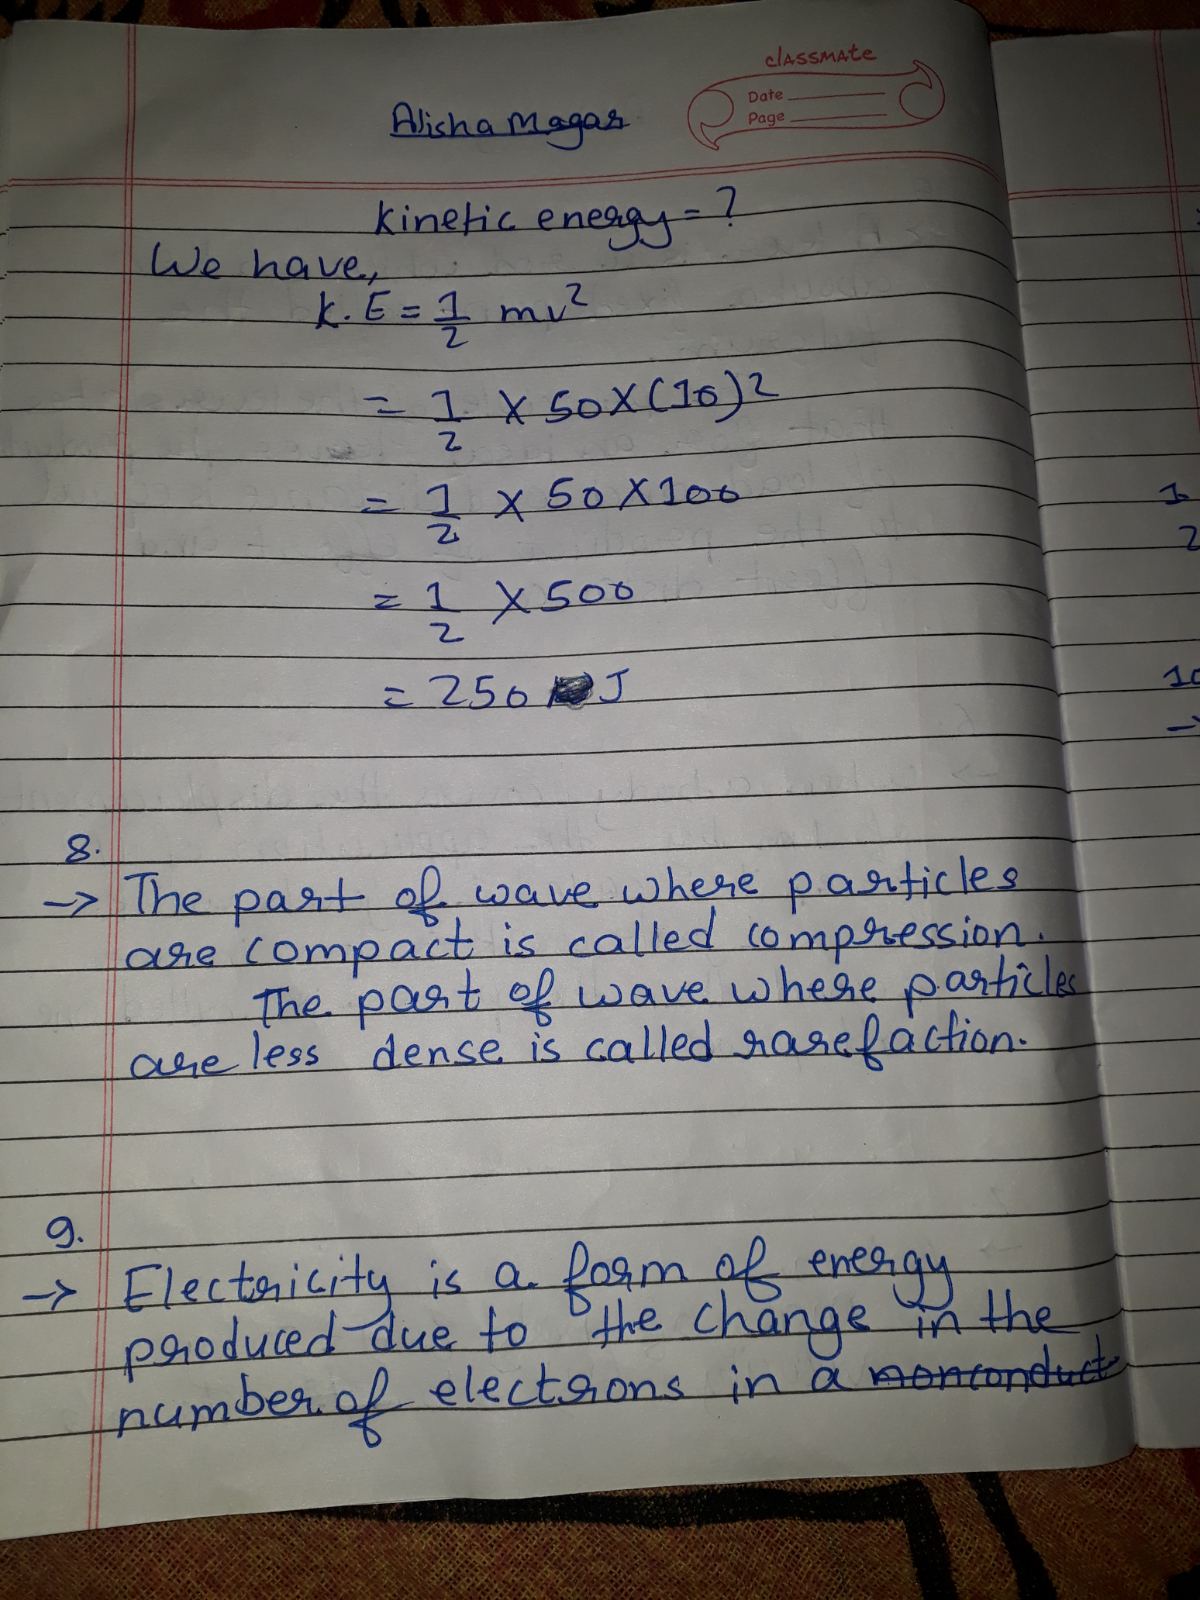 classmate
Date
Page
Alisha Magar
Kinetic energy = ?
We have,
K.E = 1/2 mv²
= 1/2 × 50 × (10)²
= 1/2 × 50 × 100
= 1/2 × 500
= 250 J
8.
→ The part of wave where particles
are compact is called compression.
The part of wave where particles
are less dense is called rarefaction.
9.
→ Electricity is a form of energy
produced due to the change in the
number of electrons in a nonconduct
1.
2
10
→